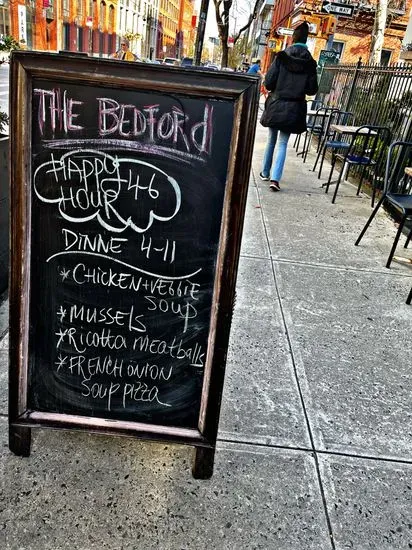 THE BEDFORd
HAPPY
HOUR 4-6
DINNE 4-11
*CHICKEN+VEGGIE
SOUP
*MUSSELS
*RICOTTA MEATBALLS
*FRENCH ONION
SOUP PIZZA